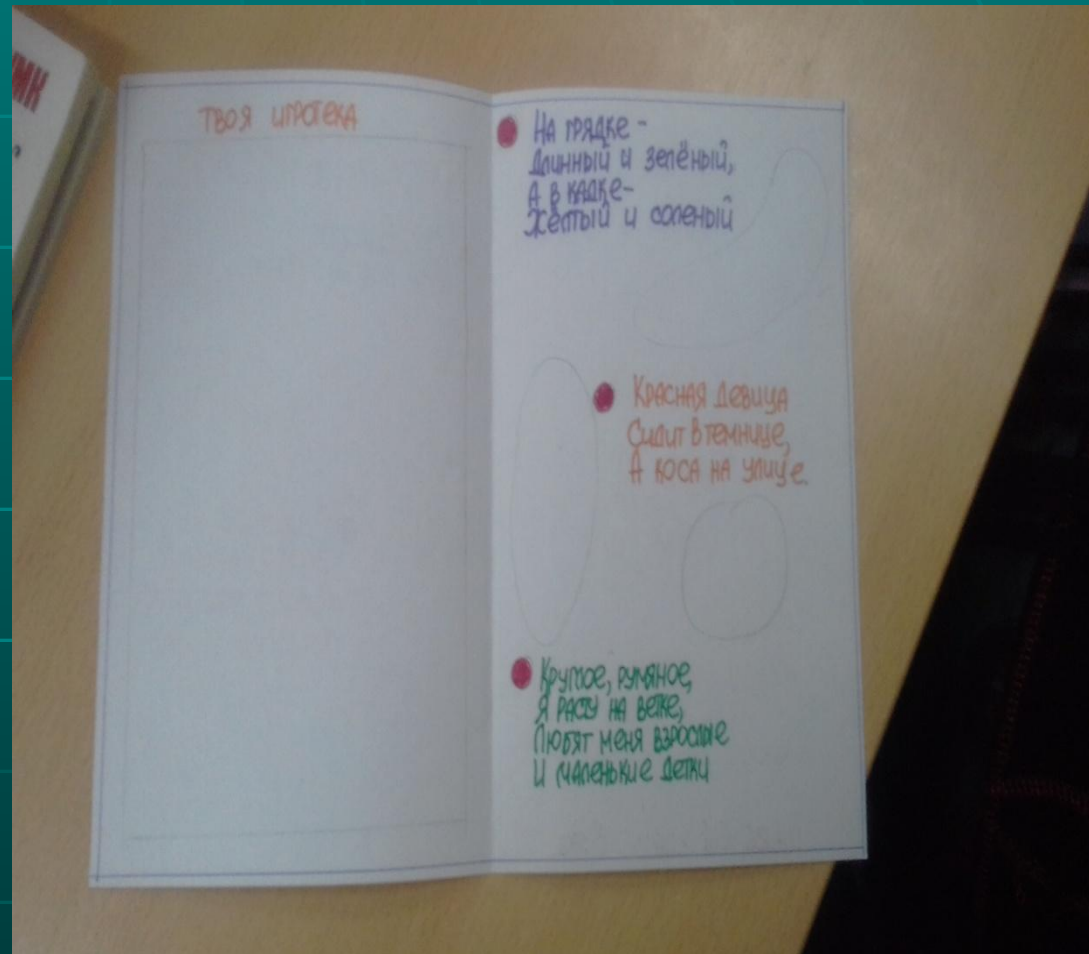 ТВОЯ ИГРОТЕКА
НА ГРЯДКЕ -
ДЛИННЫЙ И ЗЕЛЁНЫЙ,
А В КАДКЕ-
ЖЁЛТЫЙ И СОЛЕНЫЙ
КРАСНАЯ ДЕВИЦА
СИДИТ В ТЕМНИЦЕ,
А КОСА НА УЛИЦЕ.
КРУГЛОЕ, РУМЯНОЕ,
Я РАСТУ НА ВЕТКЕ,
ЛЮБЯТ МЕНЯ ВЗРОСЛЫЕ
И МАЛЕНЬКИЕ ДЕТКИ